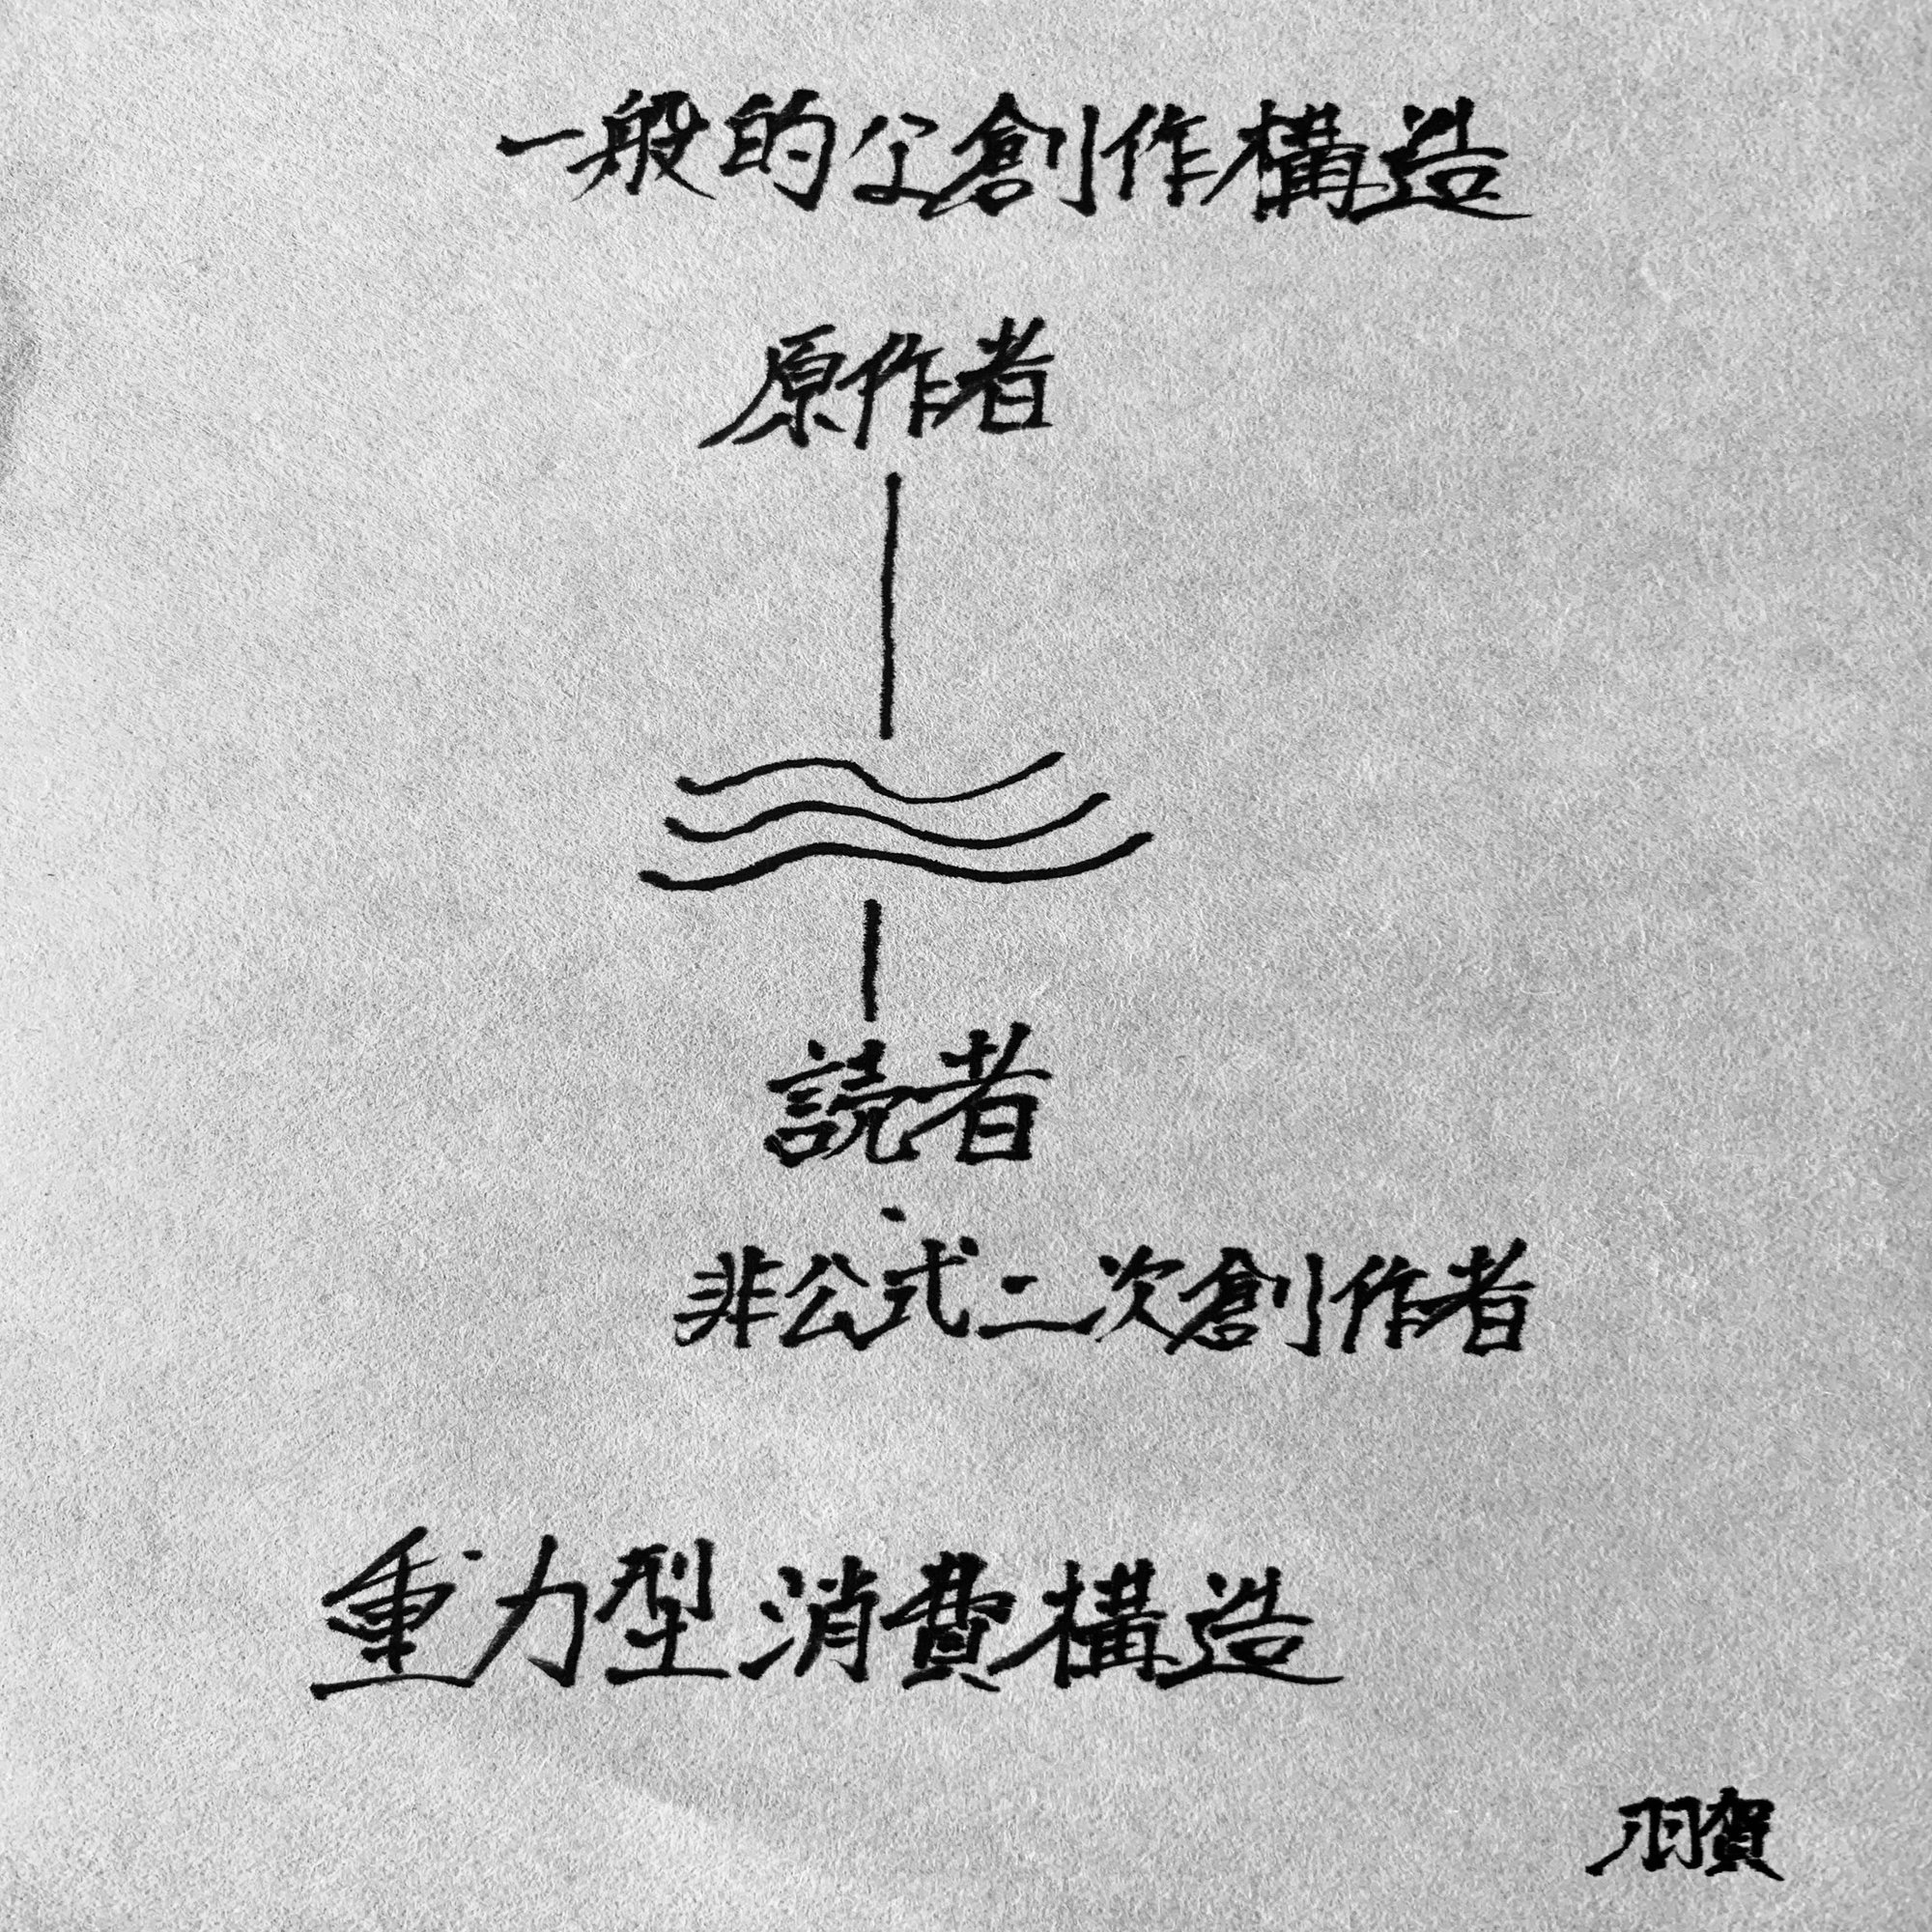 一般的な創作構造
原作者
読者
・
非公式二次創作者
重力型消費構造
羽賀